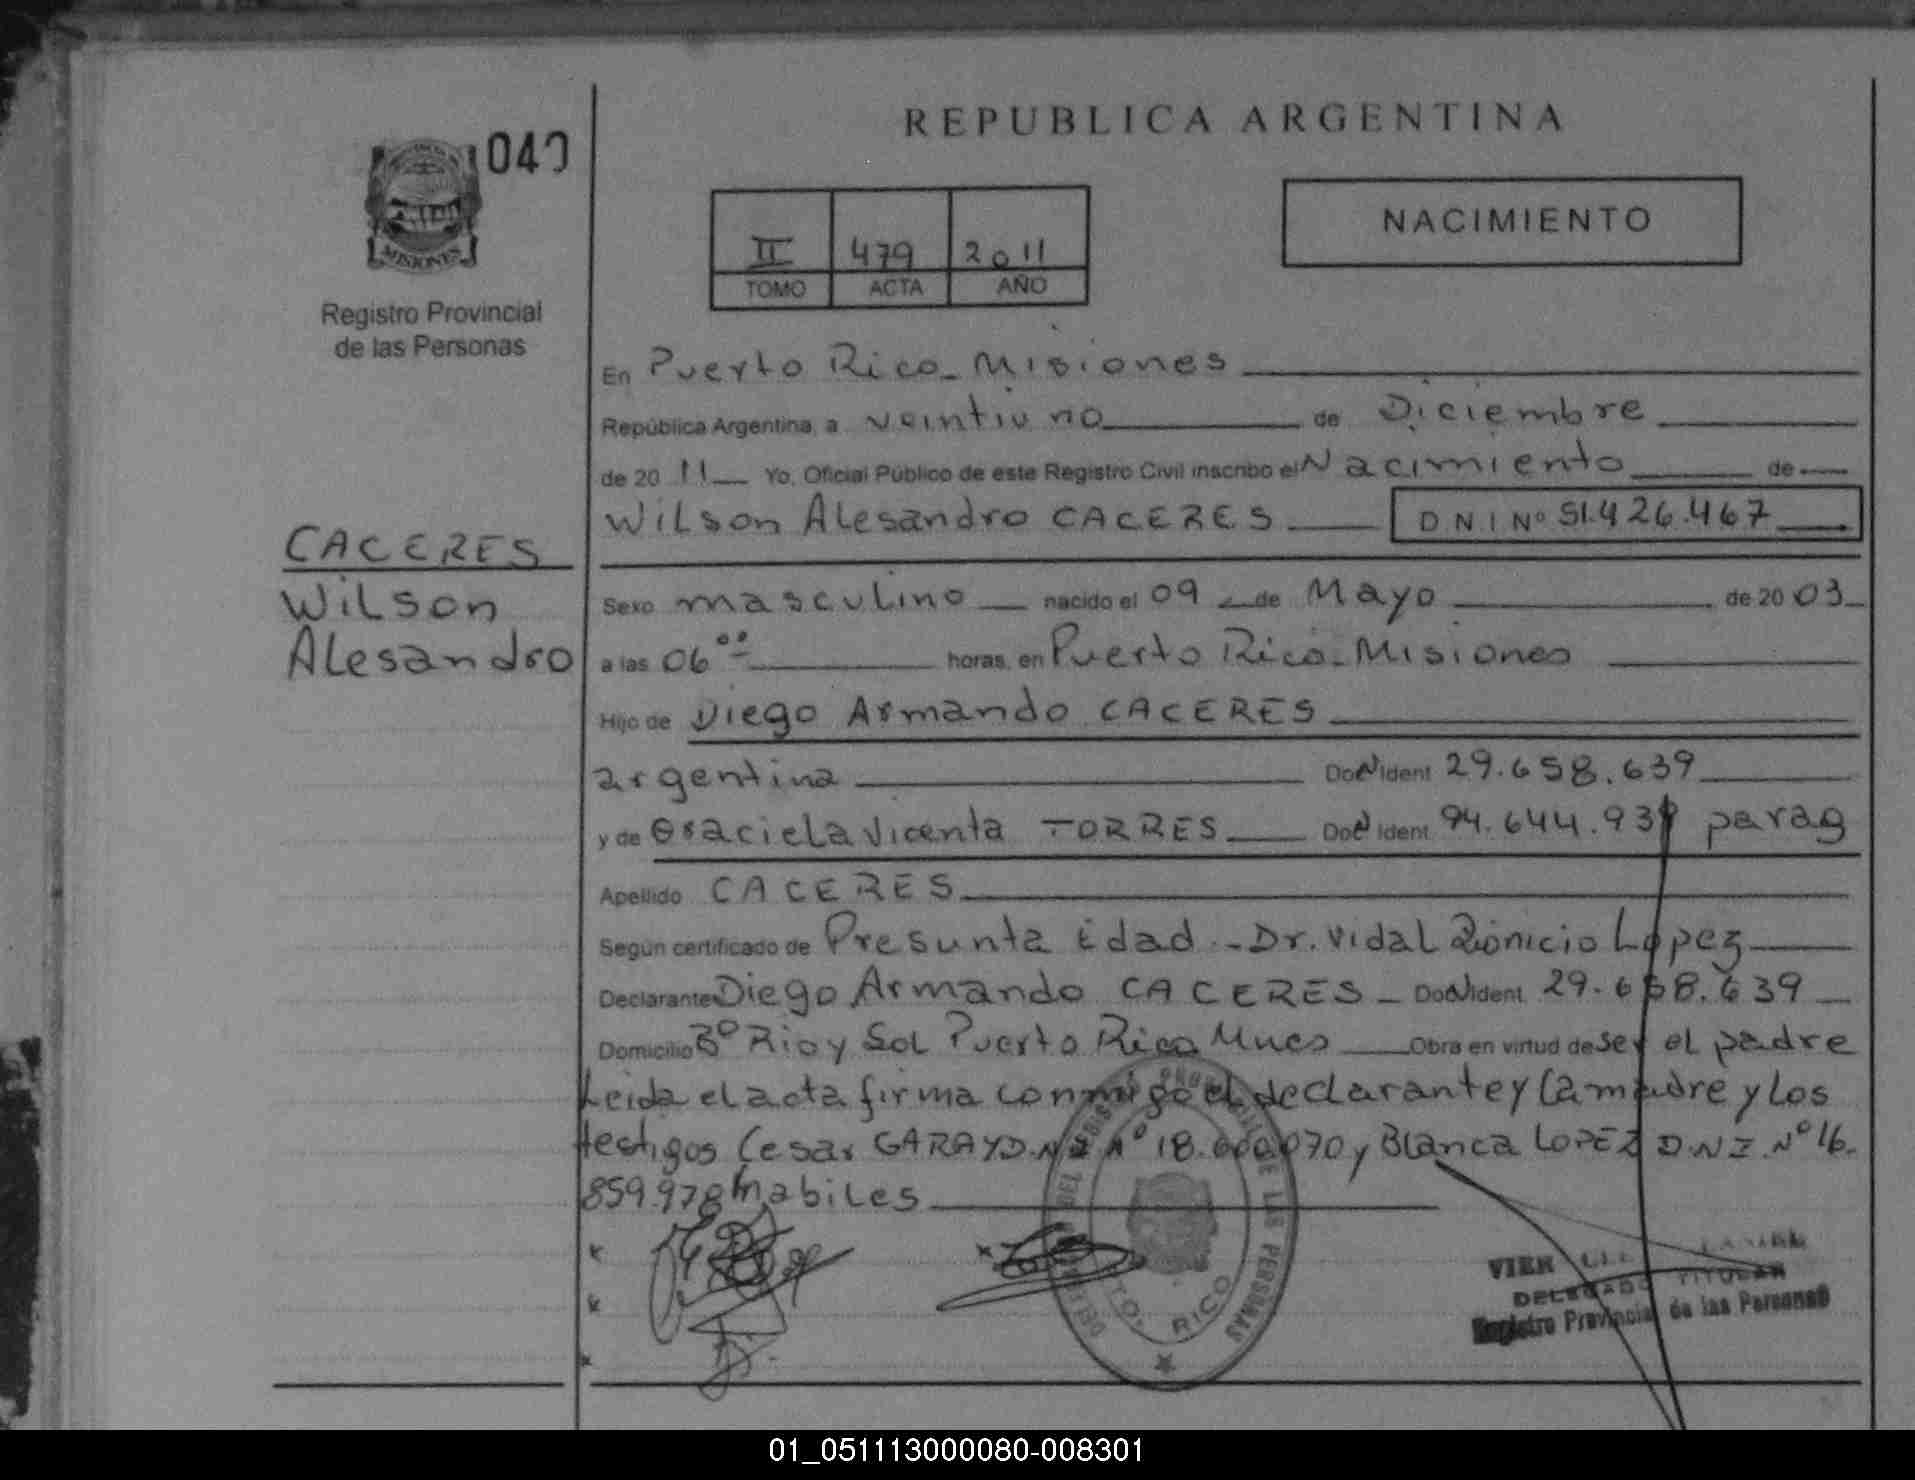 REPUBLICA ARGENTINA
MISIONES
Registro Provincial
de las Personas
II 479 2011
TOMO ACTA AÑO
NACIMIENTO
En Puerto Rico - Misiones
República Argentina, a veintiuno de Diciembre
de 2011 Yo, Oficial Público de este Registro Civil inscribo el Nacimiento de
Wilson Alesandro CACERES D N I Nº 51.426.467
CACERES
Wilson
Alesandro
Sexo masculino nacido el 09 de Mayo de 2003
a las 06 00 horas, en Puerto Rico - Misiones
Hijo de Diego Armando CACERES
argentina Doc Ident 29.658.639
y de Graciela Vicenta TORRES Doc Ident 94.644.939 parag
Apellido CACERES
Según certificado de Presunta Edad - Dr. Vidal Dionicio Lopez
Declarante Diego Armando CACERES - Doc Ident 29.658.639
Domicilio Bº Rio y Sol Puerto Rico Mnes Obra en virtud de ser el padre
Leida el acta firma conmigo el declarante y la madre y los
testigos Cesar GARAY D.N.I Nº 18.600.070 y Blanca LOPEZ D.N.I. Nº 16.
859.978 habiles
DE LAS PERSONAS
PTO. RICO
DELEGADO TITULAR
Registro Provincial de las Personas
01_051113000080-008301